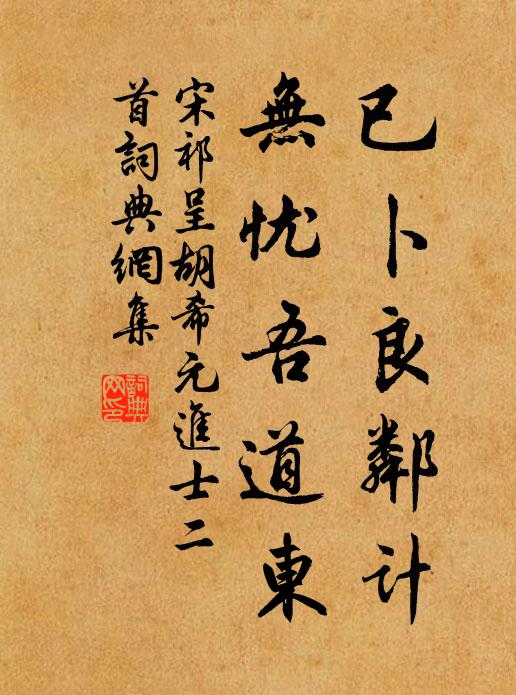 已卜良鄰計
無忧吾道東
宋祁呈胡希元進士二
首詞典網集
詞典网印